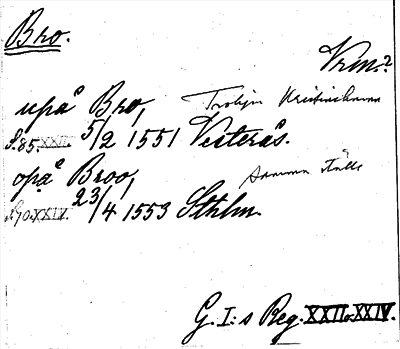 Bro.
Vrm.?
upå Bro, Troligen Kristinehamn
S. 85. XXII. 5/2 1551 Vesterås.
opå Broo, Samma ställe
S. 70. XXIV. 23/4 1553 Sthlm.
G. I:s Reg. XXII. XXIV.